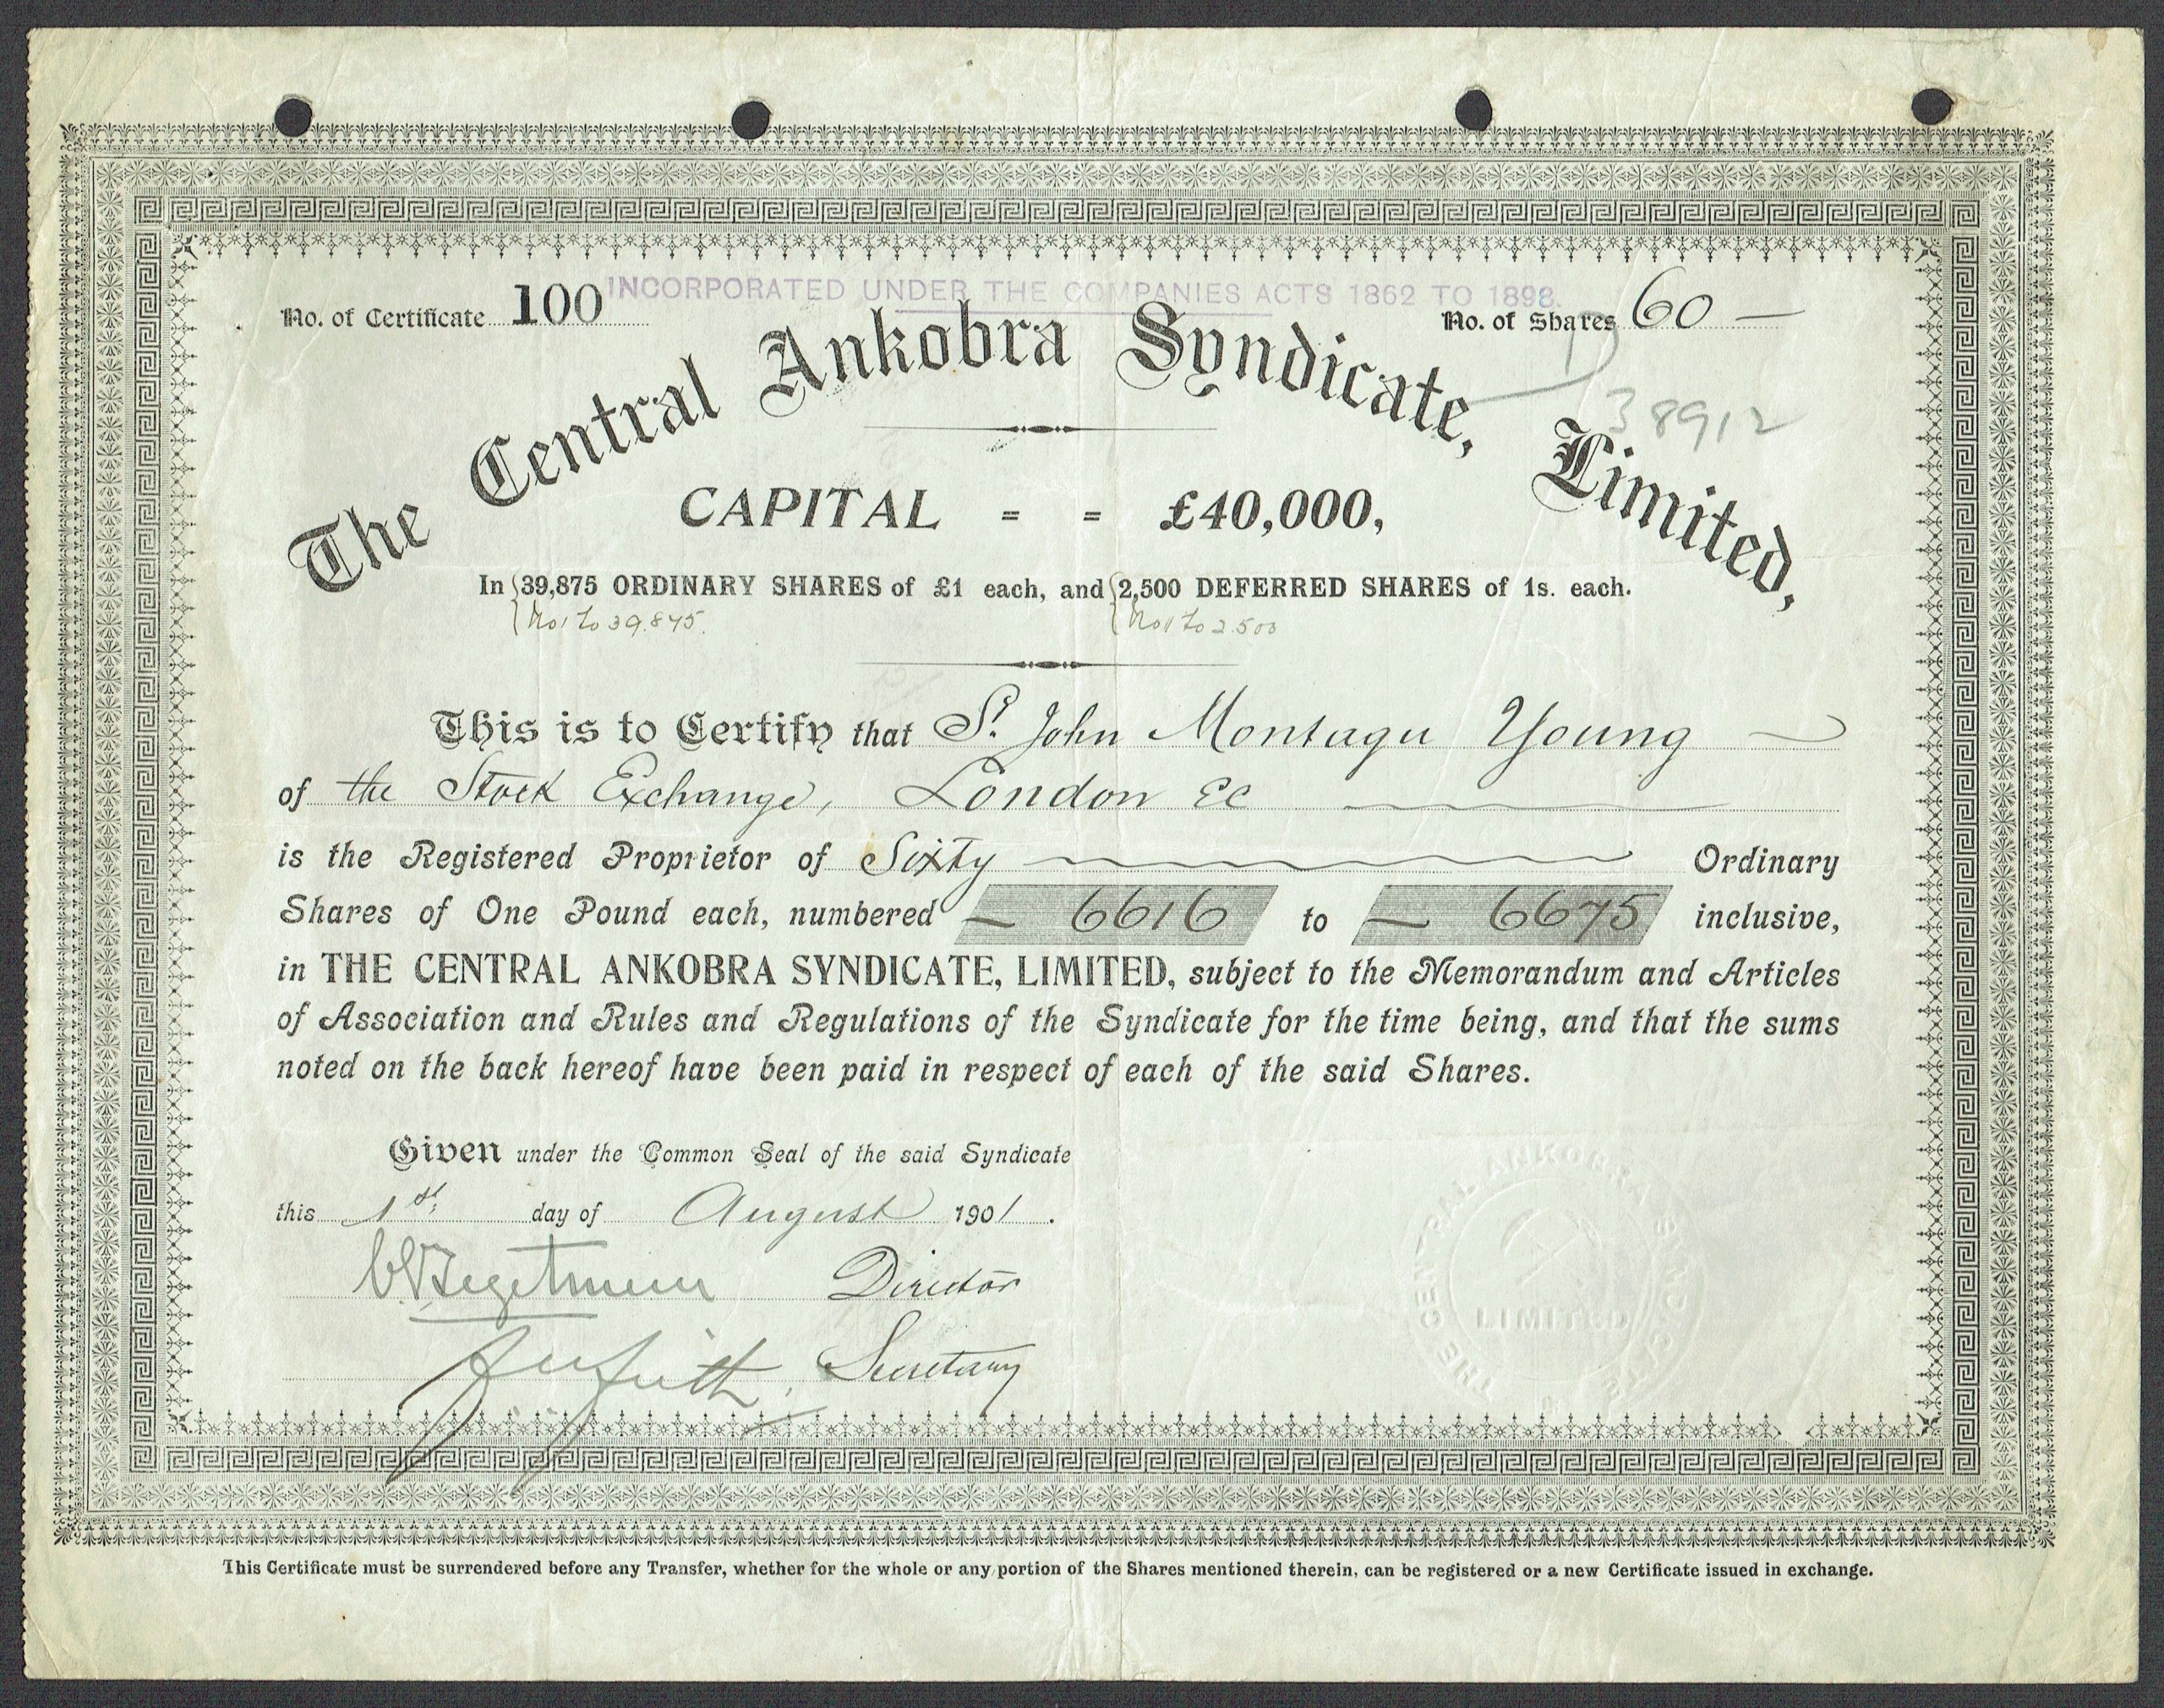 INCORPORATED UNDER THE COMPANIES ACTS 1862 TO 1898.
No. of Certificate 100
No. of Shares 60 —
38912
The Central Ankobra Syndicate, Limited,
CAPITAL = = £40,000,
In 39,875 ORDINARY SHARES of £1 each, and 2,500 DEFERRED SHARES of 1s. each.
No 1 to 39.875. No 1 to 2.500
This is to Certify that St. John Montagu Young
of the Stock Exchange, London EC
is the Registered Proprietor of Sixty Ordinary
Shares of One Pound each, numbered — 6616 to — 6675 inclusive,
in THE CENTRAL ANKOBRA SYNDICATE, LIMITED, subject to the Memorandum and Articles
of Association and Rules and Regulations of the Syndicate for the time being, and that the sums
noted on the back hereof have been paid in respect of each of the said Shares.
Given under the Common Seal of the said Syndicate
this 1st. day of August 1901.
Director
Secretary
THE CENTRAL ANKOBRA SYNDICATE
LIMITED
This Certificate must be surrendered before any Transfer, whether for the whole or any portion of the Shares mentioned therein, can be registered or a new Certificate issued in exchange.